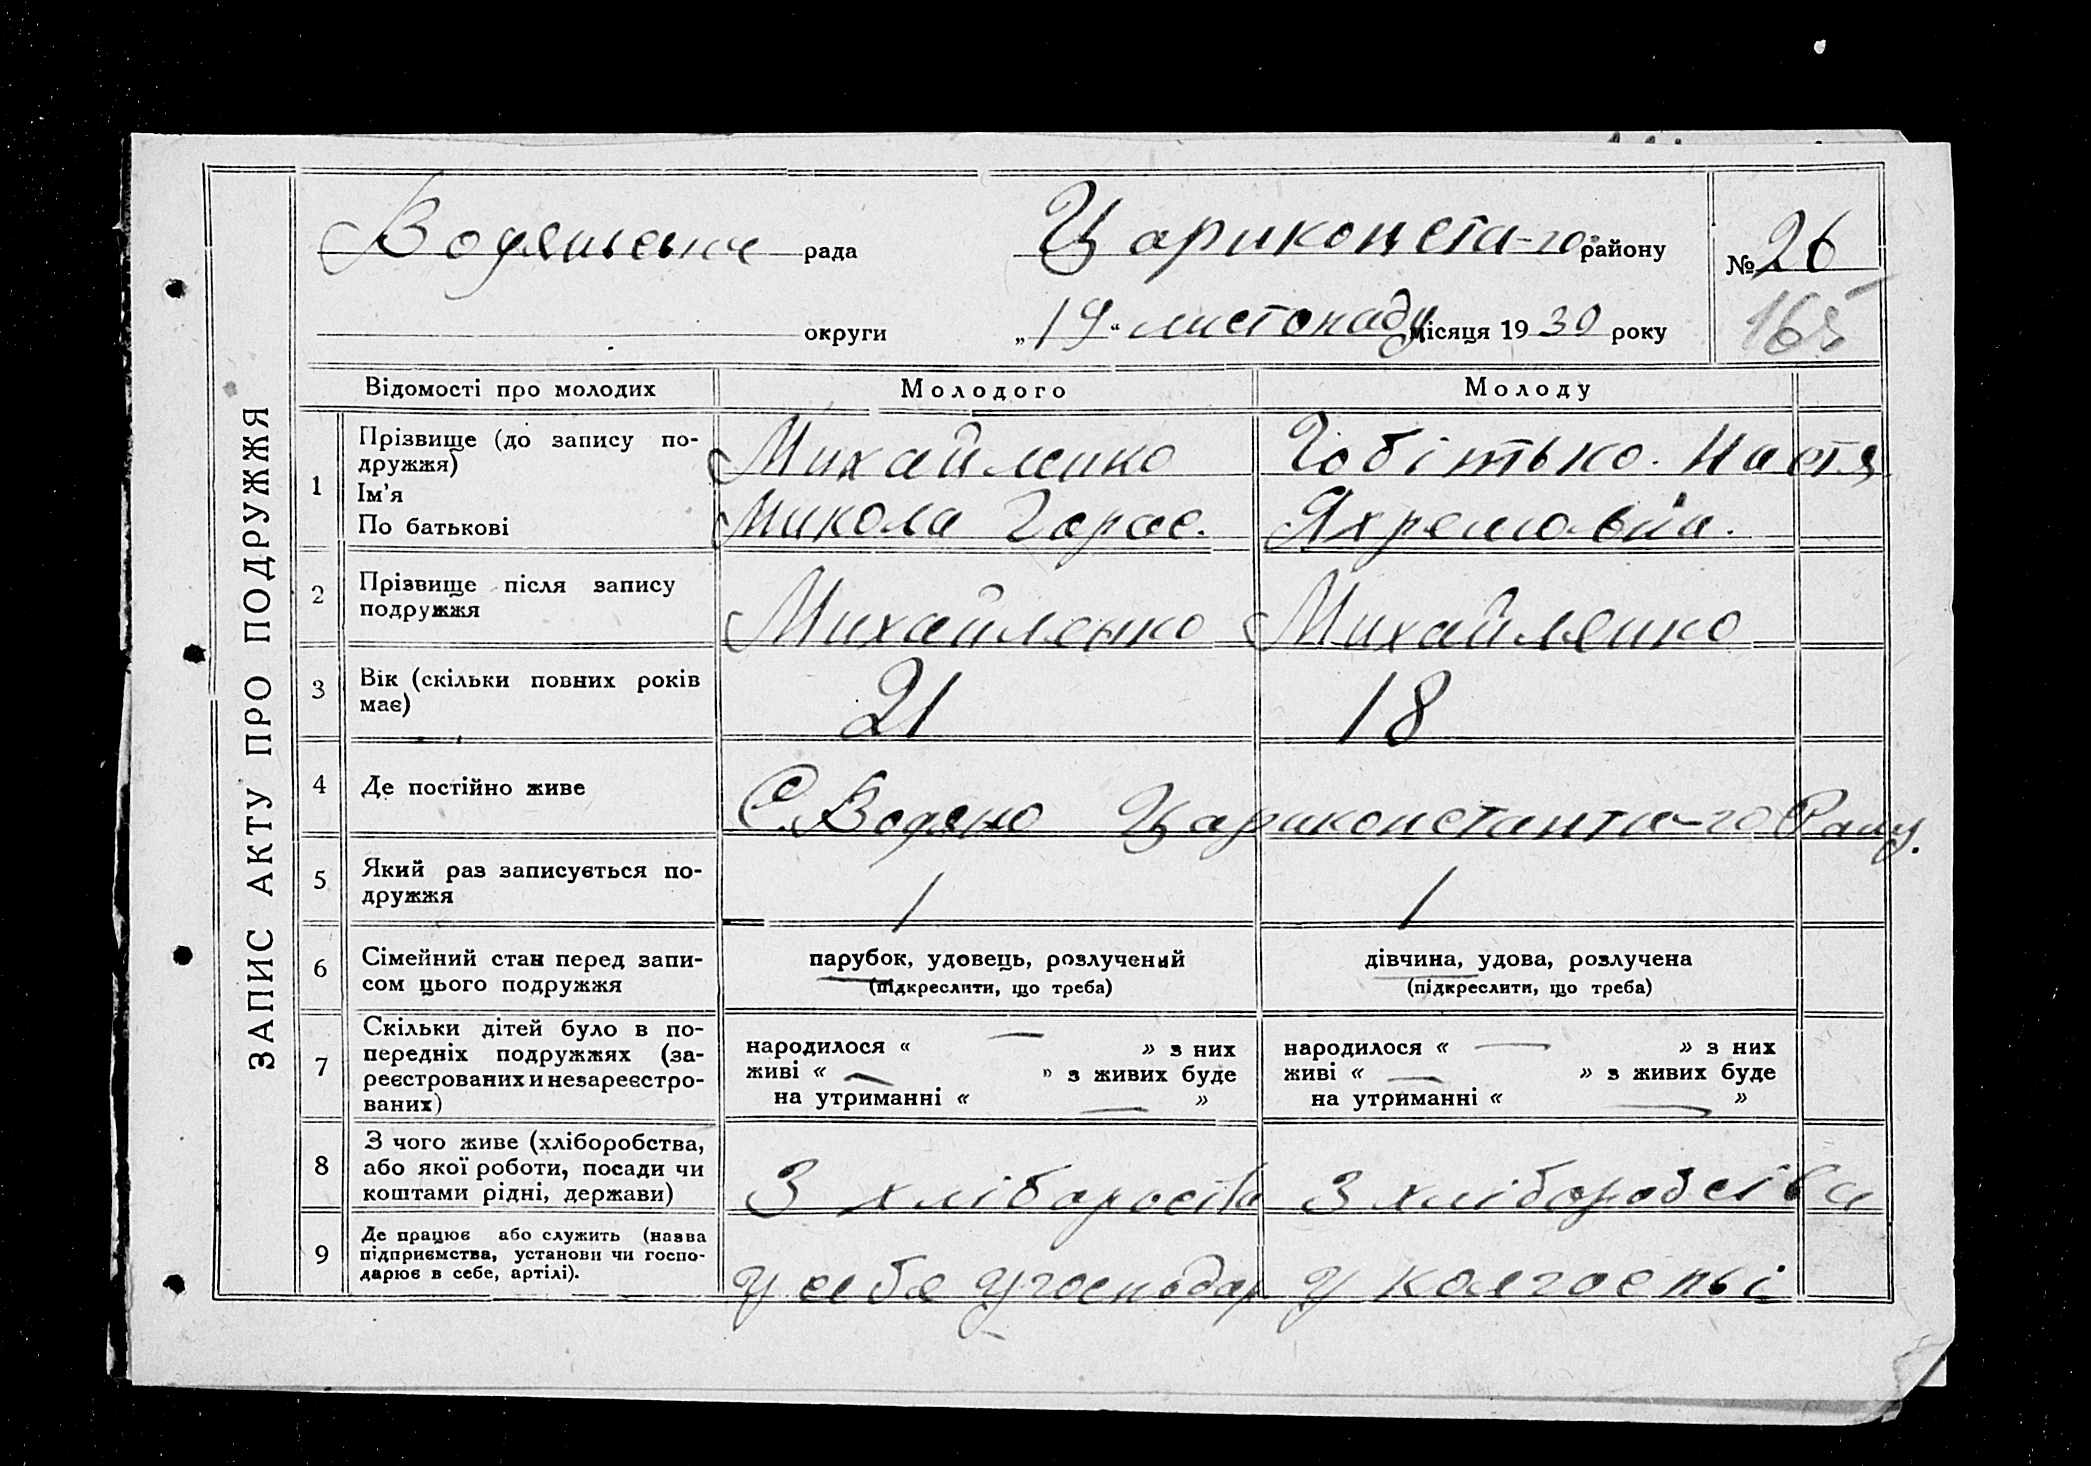 ЗАПИС АКТУ ПРО ПОДРУЖЖЯ
Водянська рада Цариконста-го району № 26
округи „19“ листопаду місяця 1930 року 165
Відомості про молодих Молодого Молоду
1 Прізвище (до запису по-
дружжя)
Ім’я
По батькові
Михайленко
Микола Тарас.
Чобітько. Настя
Яхремовна.
2 Прізвище після запису
подружжя
Михайленко Михайленко
3 Вік (скільки повних років
має)
21 18
4 Де постійно живе С. Водяно Цариконстанти-го Рану.
5 Який раз записується по-
дружжя
1 1
6 Сімейний стан перед запи-
сом цього подружжя
парубок, удовець, розлучений
(підкреслити, що треба)
дівчина, удова, розлучена
(підкреслити, що треба)
7 Скільки дітей було в по-
передніх подружжях (за-
реєстрованих и незареєстро-
ваних)
народилося « — » з них
живі « — » з живих буде
на утриманні « — »
народилося « — » з них
живі « — » з живих буде
на утриманні « — »
8 З чого живе (хліборобства,
або якої роботи, посади чи
коштами рідні, держави)
З хлібороства З хліборобства
9 Де працює або служить (назва
підприємства, установи чи госпо-
дарює в себе, артілі).
У себе у господар У колгоспі